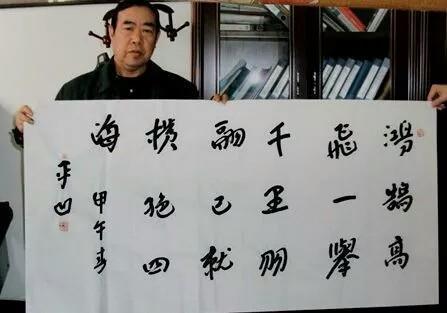 鸿鹄高
飛一舉
千里羽
翮已就
横绝四
海 甲午春
平凹